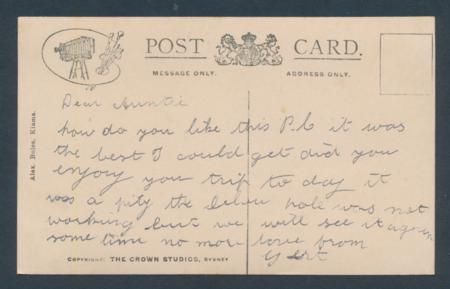 POST CARD.
MESSAGE ONLY. ADDRESS ONLY.
Alex. Boles, Kiama.
Dear Auntie
how do you like this P.C it was
the best I could get did you
enjoy you trip to day it
was a pity the blow hole was not
working but we will see it again
some time no more love from
Gert
COPYRIGHT: THE CROWN STUDIOS, SYDNEY